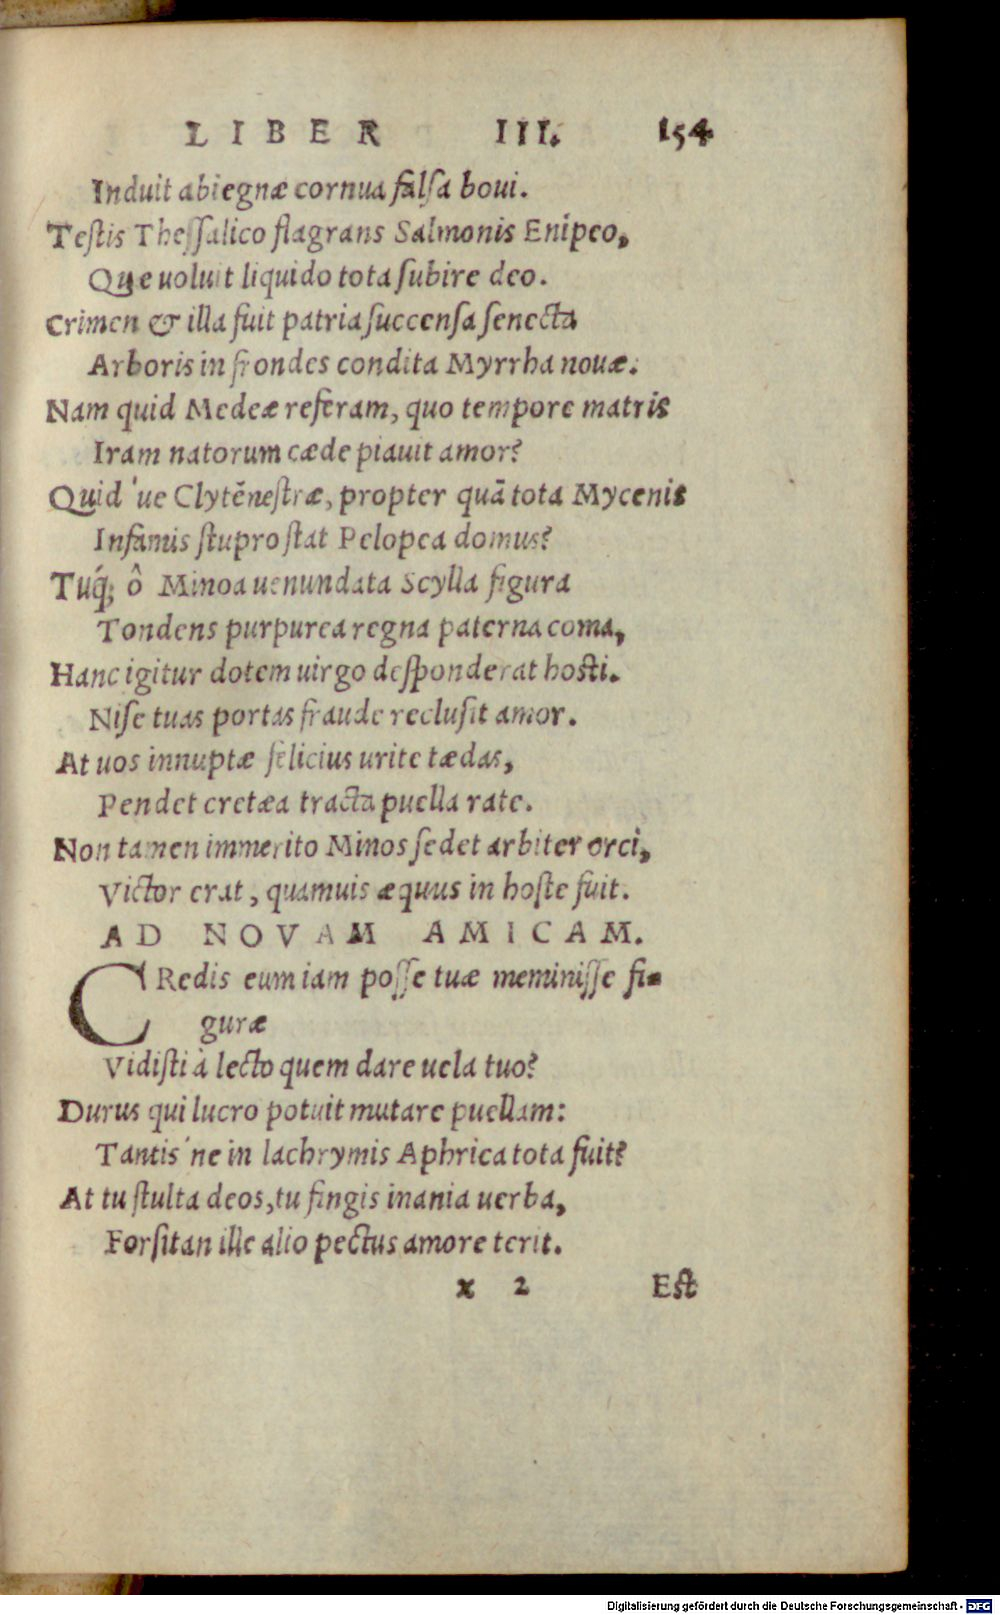 LIBER III. 154
Induit abiegnæ cornua falsa boui.
Testis Thessalico flagrans Salmonis Enipeo,
Que uoluit liquido tota subire deo.
Crimen & illa fuit patria succensa senecta
Arboris in frondes condita Myrrha nouæ.
Nam quid Medeæ referam, quo tempore matris
Iram natorum cæde piauit amor?
Quid 've Clytēnestræ, propter quā tota Mycenis
Infamis stupro stat Pelopea domus?
Tuq́; ô Minoa uenundata Scylla figura
Tondens purpurea regna paterna coma,
Hanc igitur dotem uirgo desponderat hosti.
Nise tuas portas fraude reclusit amor.
At uos innuptæ felicius urite tædas,
Pendet cretæa tracta puella rate.
Non tamen immerito Minos sedet arbiter orci,
Victor erat, quamuis æquus in hoste fuit.
AD NOVAM AMICAM.
CRedis eum iam posse tuæ meminisse fi-
guræ
Vidisti à lecto quem dare uela tuo?
Durus qui lucro potuit mutare puellam:
Tantis 'ne in lachrymis Aphrica tota fuit?
At tu stulta deos, tu fingis inania uerba,
Forsitan ille alio pectus amore terit.
x 2 Est
Digitalisierung gefördert durch die Deutsche Forschungsgemeinschaft - DFG